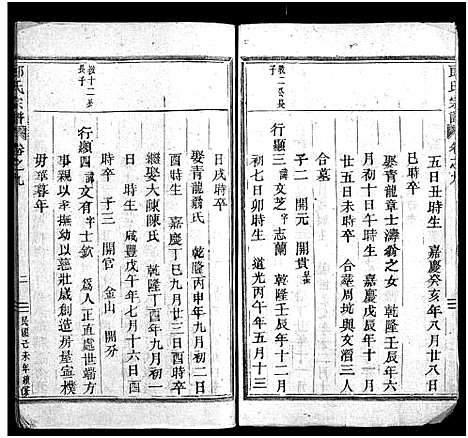 邱氏宗譜 卷之九
五日丑時生 嘉慶癸亥年八月廿八日
巳時卒
娶青龍章士濤翁之女 乾隆壬辰年六
月初十日午時生 嘉慶戊辰年十一月
廿五日未時卒 合葬周坑與文酒三人
合墓
子二 開元 開貫
教二公長子
行顯三 諱文芝 字志蘭 乾隆壬辰年十一月
初七日卯時生 道光丙午年五月十三
日戌時卒
娶青龍聶氏 乾隆丙申年九月初二日
酉時生 嘉慶丁巳九月廿三日酉時卒
繼娶大陳陳氏 乾隆丁酉年九月初
日 時生 咸豐戊午年七月十六日酉
時卒 子三 開官 金山 開芬
教十二公長子
行顯四 諱文有 字士欽 為人正直處世端方
事親以孝撫幼以慈壯歲創造房屋實樸
毋華暮年
氏宗譜 卷之九
二
民國己未年續修